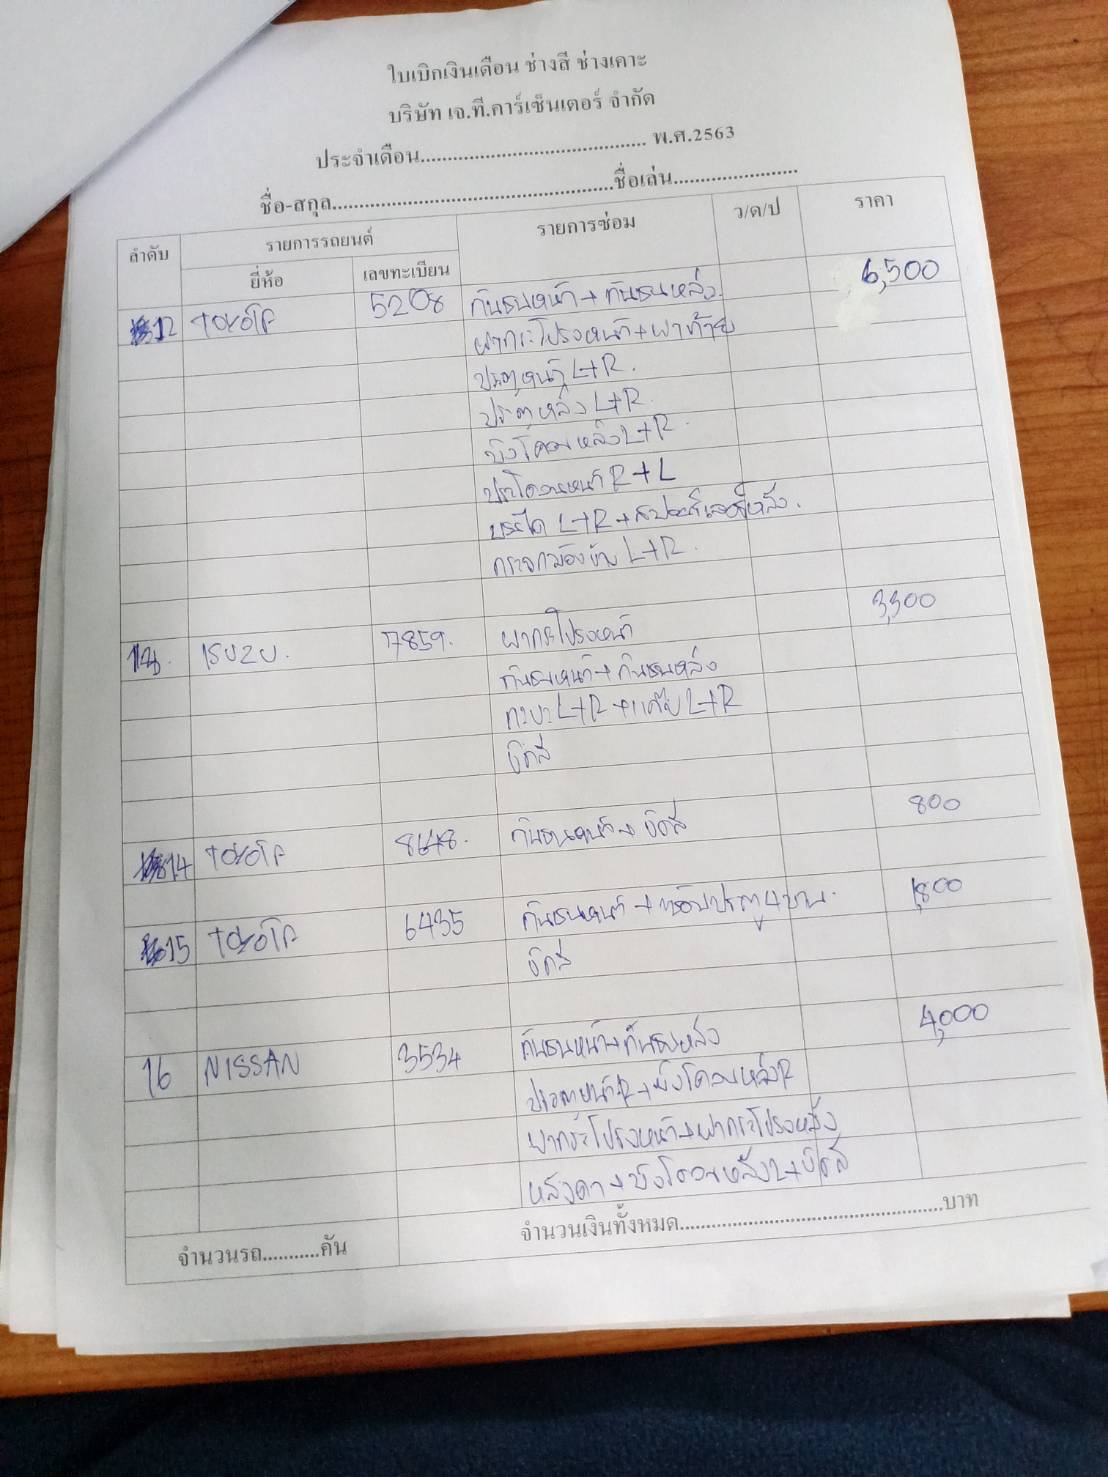 ใบเบิกเงินเดือน ช่างสี ช่างเคาะ
บริษัท เจ.ที.คาร์เซ็นเตอร์ จำกัด
ประจำเดือน.......................................... พ.ศ.2563
ชื่อ-สกุล....................................................ชื่อเล่น.......................
ลำดับ รายการรถยนต์ รายการซ่อม ว/ด/ป ราคา
ยี่ห้อ เลขทะเบียน
12 TOYOTA 5208 กันชนหน้า+กันชนหลัง 6,500
ฝากระโปรงหน้า+ฝาท้าย
ประตูหน้า L+R.
ประตูหลัง L+R.
บังโคลนหลัง L+R.
หน้า R+L
บรรได L+R+สปอยเลอร์หลัง.
กระจกมองข้าง L+R.
ISUZU. 7859. ฝากระโปรงหน้า 3,300
กันชนหน้า+กันชนหลัง
กระบะ L+R+แค๊ป L+R
ขัดสี
14 TOYOTA 8648. กันชนหน้า+ขัดสี 800
15 TOYOTA 6435 กันชนหน้า+ประตู 4 บาน. 1,800
ขัดสี
16 NISSAN 3534 กันชนหน้า+กันชนหลัง 4,000
ประตูหน้า R+บังโคลนหลัง R
ฝากระโปรงหน้า+ฝากระโปรงหลัง
หลังคา+บังโคลนหลัง L+ขัดสี
จำนวนรถ...........คัน จำนวนเงินทั้งหมด..................................................บาท